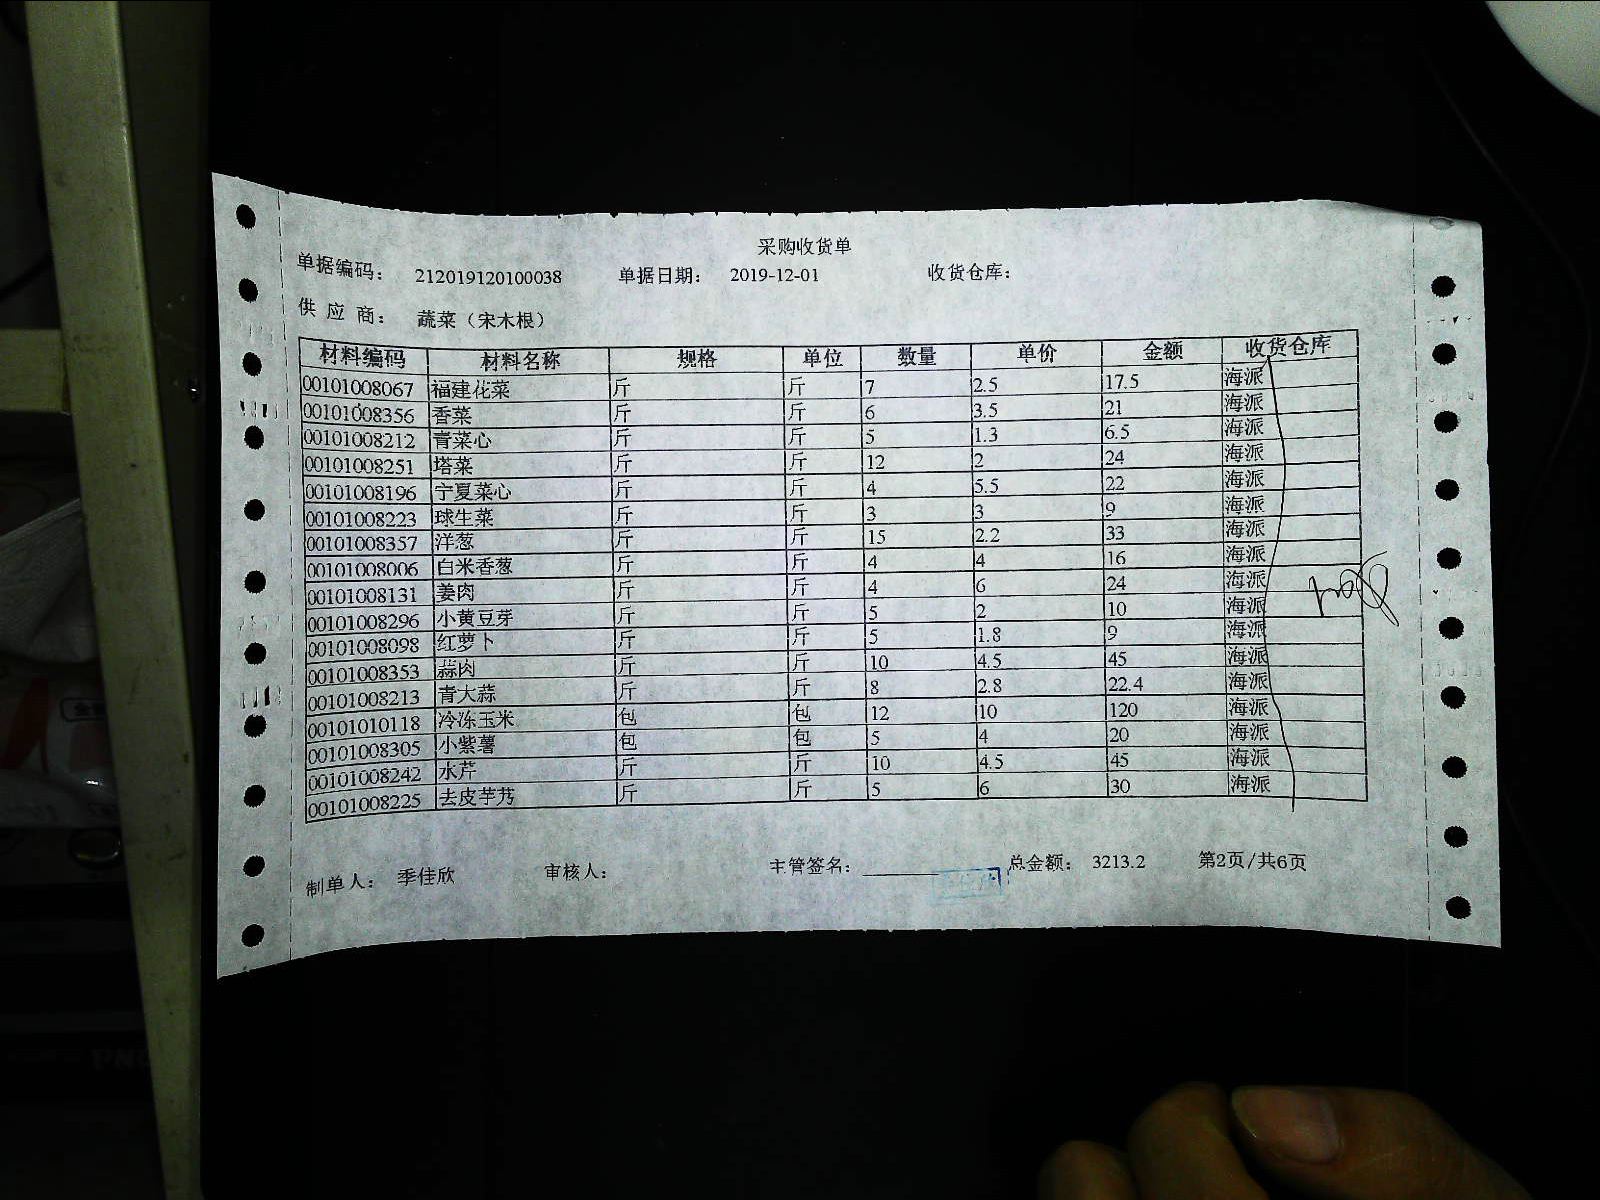 采购收货单
单据编码： 212019120100038 单据日期： 2019-12-01 收货仓库：
供 应 商： 蔬菜（宋木根）
材料编码 材料名称 规格 单位 数量 单价 金额 收货仓库
00101008067 福建花菜 斤 斤 7 2.5 17.5 海派
00101008356 香菜 斤 斤 6 3.5 21 海派
00101008212 青菜心 斤 斤 5 1.3 6.5 海派
00101008251 塔菜 斤 斤 12 2 24 海派
00101008196 宁夏菜心 斤 斤 4 5.5 22 海派
00101008223 球生菜 斤 斤 3 3 9 海派
00101008357 洋葱 斤 斤 15 2.2 33 海派
00101008006 白米香葱 斤 斤 4 4 16 海派
00101008131 姜肉 斤 斤 4 6 24 海派
00101008296 小黄豆芽 斤 斤 5 2 10 海派
00101008098 红萝卜 斤 斤 5 1.8 9 海派
00101008353 蒜肉 斤 斤 10 4.5 45 海派
00101008213 青大蒜 斤 斤 8 2.8 22.4 海派
00101010118 冷冻玉米 包 包 12 10 120 海派
00101008305 小紫薯 包 包 5 4 20 海派
00101008242 水芹 斤 斤 10 4.5 45 海派
00101008225 去皮芋艿 斤 斤 5 6 30 海派
制单人： 季佳欣 审核人： 主管签名： 总金额： 3213.2 第2页/共6页